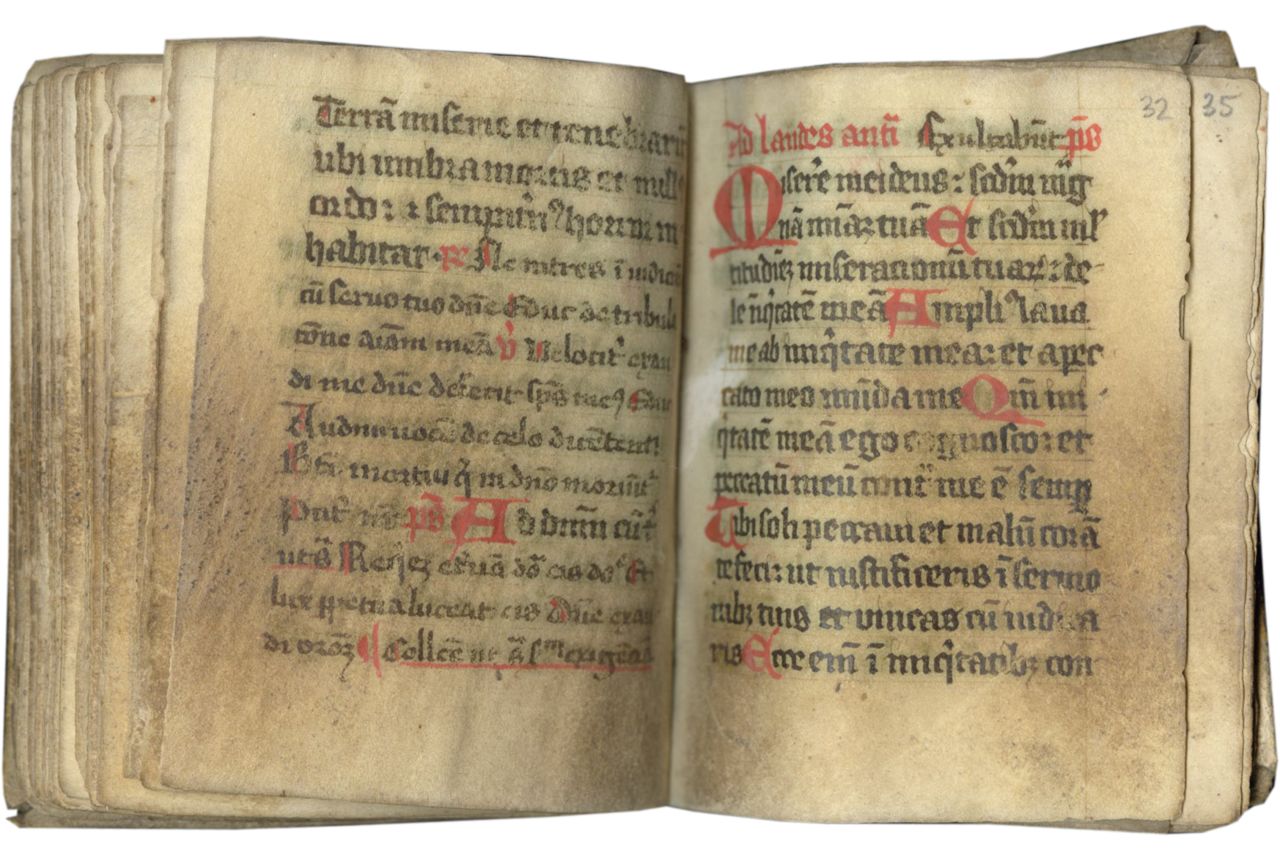 Terrā miserie et tenebrarū
ubi umbra mortis et null
ordo: et sempit'n' horror in
habitat. R Ne intres ī iudiciū
cū seruo tuo dn̄e Educ de tribula
cōne aīam meā V Velocit' exau
di me dn̄e defecit sp̄s me' Educ
A Audiui uocē de celo dicētem
Bt̄i mortui q̄ in dn̄o moriūt'
Pat' nr̄ ps̄ Ad dnm̄ cū t'
Req̄ez et'nā dā eis do' Et
lux ꝑpetua luceat eis Dn̄e exau
di oroēz Collcē ut
32 35
Ad laudes antī Exultabūt ps̄
Misere mei deus: scdm̄ mag
nā mīaꝫ tuā Et scdm̄ mul
titudiēꝫ miseracionū tuaꝝ: de
le īiq̄tatē meā Ampli' laua
me ab iniq̄tate mea: et a pec
cato meo mūda me Qm̄ ini
q̄tatē meā ego cognosco: et
peccatū meū cont' me ē semp
Tibi soli peccaui et malū corā
te feci: ut iustificeris ī sermo
nibꝫ tuis et vincas cū iudica
ris Ecce em̄ ī iniq̄tatibꝫ con